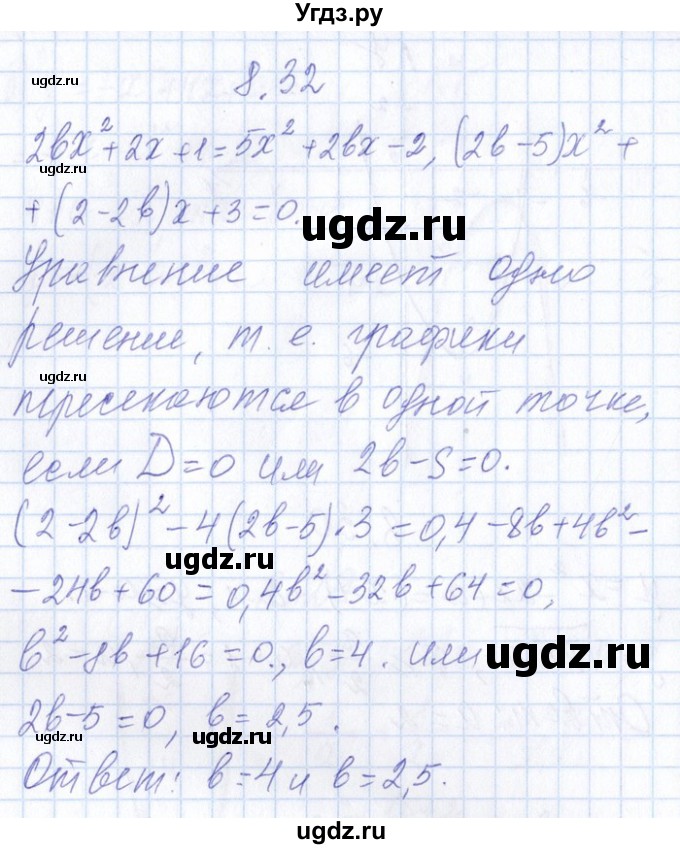 Угдз.ру
ugdz.ru
8.32
2bx²+2x+1=5x²+2bx-2, (2b-5)x²+
+(2-2b)x+3=0.
ugdz.ru
Уравнение имеет одно
решение, т. е. графики
ugdz.ru
пересекаются в одной точке,
если D=0 или 2b-5=0.
(2-2b)²-4(2b-5)·3=0, 4-8b+4b²-
ugdz.ru
-24b+60=0, 4b²-32b+64=0,
b²-8b+16=0., b=4. или
ugdz.ru
2b-5=0, b=2,5.
ugdz.ru
ugdz.ru
Ответ: b=4 и b=2,5.
ugdz.ru